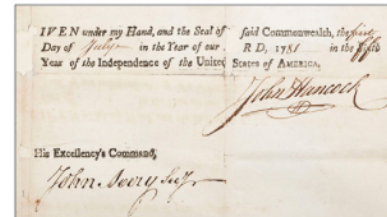 IVEN under my Hand, and the Seal of said Commonwealth, the first
Day of July in the Year of our RD, 1781 in the fifth
Year of the Independence of the United States of AMERICA,
John Hancock
His Excellency's Command,
John Avery Secy